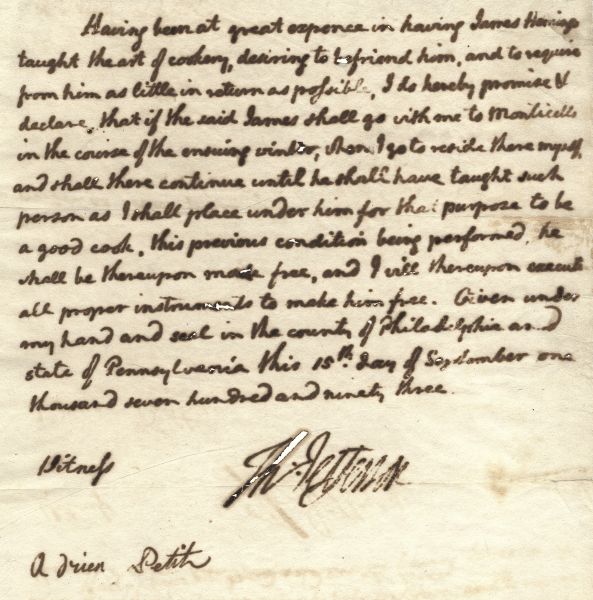 Having been at great expence in having James Hemings
taught the art of cookery, desiring to befriend him, and to require
from him as little in return as possible, I do hereby promise &
declare, that if the said James shall go with me to Monticello
in the course of the ensuing winter, when I go to reside there myself,
and shall there continue until he shall have taught such
person as I shall place under him for that purpose to be
a good cook, this previous condition being performed, he
shall be thereupon made free, and I will thereupon execute
all proper instruments to make him free. Given under
my hand and seal in the county of Philadelphia and
state of Pennsylvania this 15th. day of September one
thousand seven hundred and ninety three.
Witness
Th: Jefferson
Adrien Petit